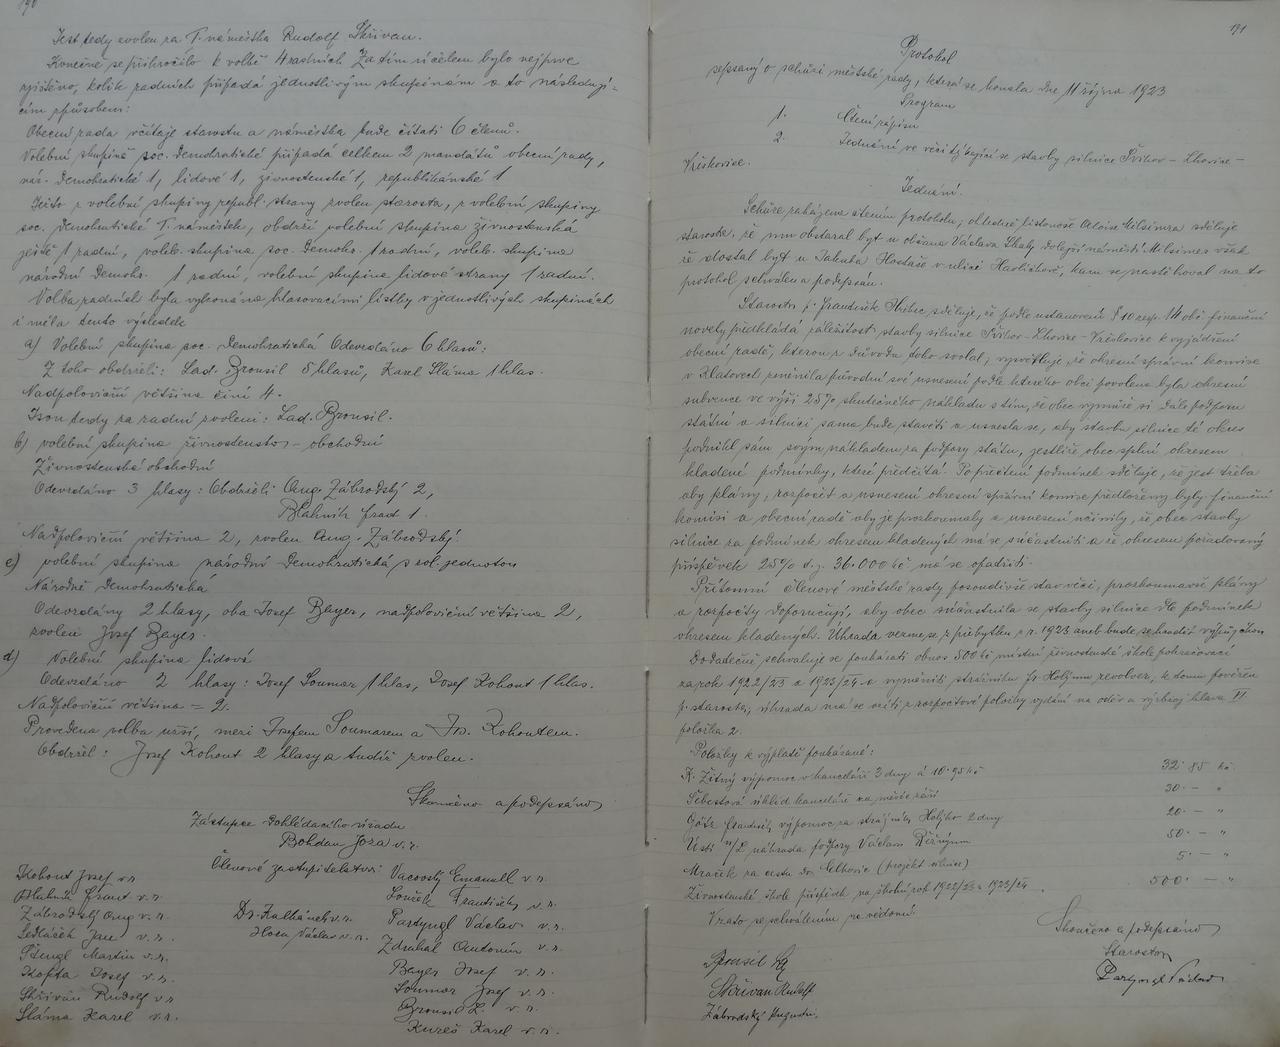 190
Jest tedy zvolen za I. náměstka Rudolf Skřivan.
Konečně se přikročilo k volbě 4 radních. Za tím účelem bylo nejprve
zjištěno, kolik radních připadá jednotlivým skupinám a to následují-
cím způsobem:
Obecní rada včítaje starostu a náměstka bude čítati 6 členů.
Volební skupině soc. demokratické připadá celkem 2 mandátů obecní rady,
nár. demokratické 1, lidové 1, živnostenské 1, republikánské 1
Ježto z volební skupiny republ. strany zvolen starosta, z volební skupiny
soc. demokratické I. náměstek, obdrží volební skupina živnostenská
ještě 1 radní, voleb. skupina soc. demokr. 1 radní, voleb. skupina
národní demokr. 1 radní, volební skupina lidové strany 1 radní.
Volba radních byla vykonána hlasovacími lístky v jednotlivých skupinách
i měla tento výsledek
a) Volební skupina soc. demokratická Odevzdáno 6 hlasů:
Z toho obdrželi: Lad. Brousil 5 hlasů, Karel Sláma 1 hlas.
Nadpoloviční většina činí 4.
Jsou tedy za radní zvoleni: Lad. Brousil.
b) volební skupina živnostensko - obchodní
Živnostenská obchodní
Odevzdáno 3 hlasy: Obdrželi Aug. Zábrodský 2,
Blahník Frant 1.
Nadpoloviční většina 2, zvolen Aug. Zábrodský
c) volební skupina národní demokratická
Národně demokratická
Odevzdány 2 hlasy, oba Josef Bayer, nadpoloviční většina 2,
zvolen Josef Bayer.
d) Volební skupina lidová
Odevzdáno 2 hlasy: Josef Soumar 1 hlas, Josef Kohout 1 hlas.
Nadpoloviční většina = 2.
Provedena volba užší, mezi Josefem Soumarem a Jos. Kohoutem.
Obdržel: Josef Kohout 2 hlasy a tudíž zvolen.
Skončeno a podepsáno
Zástupce dohlédacího úřadu
Bohdan Joza v. r.
Členové zastupitelstva:
Kohout Josef v. r.
Blahník Frant v. r.
Zábrodský Aug v. r.
Sedláček Jan v. r.
Štengl Martin v. r.
Kopta Josef v. r.
Skřivan Rudolf v. r.
Sláma Karel v. r.
Hora Václav v. r.
Vacovský Emanuell v. r.
Souček František v. r.
Partyngl Václav v. r.
Zdrahal Antonín v. r.
Bayer Josef v. r.
Soumar Josef v. r.
Brousil L. v. r.
Kureš Karel v. r.
191
Protokol
sepsaný o schůzi městské rady, která se konala dne 11 října 1923
Program
1. Čtení zápisu
2. Jednání ve věci týkající se stavby silnice Švihov - Lhovice -
Křeskovice.
Jednání.
Schůze zahájena čtením protokolu, ohledně listonoše Aloise Milsimra sděluje
starosta, že mu obstaral byt u občana Václava Skaly dolejší náměstí. Milsimer však
že dostal byt u Jakuba Hostaše v ulici Havlíčkově, kam se nastěhoval na to
protokol schválen a podepsán.
Starosta p. František Hribec sděluje, že podle ustanovení § 10 resp. 14 obč finanční
novely předkládá záležitost stavby silnice Švihov - Lhovice - Křeskovice k vyjádření
obecní radě, kterou z důvodu toho svolal, vysvětluje, že okresní správní komise
v Klatovech změnila původní své usnesení podle kterého obci povolena byla okresní
subvence ve výši 25% skutečného nákladu s tím, že obec vymůže si dále podporu
státní a silnici sama bude stavěti a usnesla se, aby stavbu silnice té okres
podnikl sám svým nákladem za podpory státu, jestliže obec splní okresem
kladené podmínky, které předčítá. Po přečtení podmínek sděluje, že jest třeba
aby plány, rozpočet a usnesení okresní správní komise předloženy byly finanční
komisi a obecní radě aby je prozkoumaly a usnesení učinily, že obec stavby
silnice za podmínek okresem kladených má se súčastniti a že okresem požadovaný
příspěvek 25% t. j. 36.000 kč má se opatřiti.
Přítomní členové městské rady posoudivše stav věci, prozkoumavše plány
a rozpočty doporučují, aby obec súčastnila se stavby silnice dle podmínek
okresem kladených. Úhrada vezme se z přebytku z r. 1923 aneb bude se hraditi
Dodatečně schvaluje se poukázati obnos 500 kč místní živnostenské škole pokračovací
za rok 1922/23 a 1923/24 a vyměniti strážníku Fr Holýmu revolver, k tomu pověřen
p. starosta, úhrada má se vzíti z rozpočtové položky vydání na oděv a výzbroj hlava VI
položka 2.
Položky k výplatě poukázané:
K. Žitný výpomoc v kanceláři 3 dny á 10.95 kč 32.85 kč
Šebestová úklid kanceláře za měsíc září 30.- "
Götz František výpomoc za strážníka Holýho 2 dny 20.- "
Ústí n/L náhrada podpory Václava Říznýmu 50.- "
Mraček za cestu do (projekt silnice) 5.- "
Živnostenské škole příspěvek na školní rok 1922/23 a 1923/24 500.- "
Vzato se schválením ve vědomí.
Skončeno a podepsáno
Starosta
Partyngl Václav
Brousil L
Skřivan Rudolf
Zábrodský Augustin.